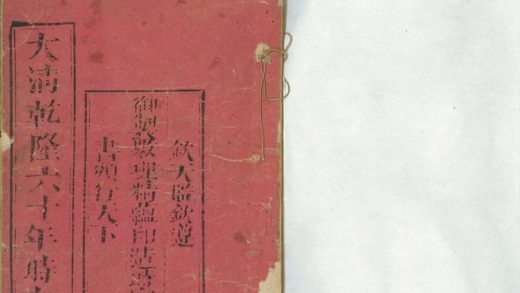 欽天監欽遵
御製數理精蘊印造時
書頒行天下
大清乾隆六十年時